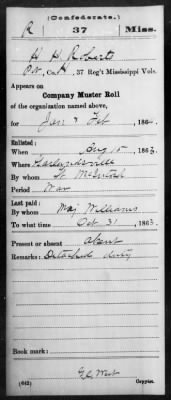 (Confederate.)
R 37 Miss.
H H Roberts
Pvt, Co. H, 37 Reg't Mississippi Vols.
Appears on
Company Muster Roll
of the organization named above,
for Jan & Feb, 186
Enlisted:
When Aug 15, 186
Where Garlandville
By whom Lt. McIntosh
Period War
Last paid:
By whom Maj Williams
To what time Oct 31, 1863
Present or absent Absent
Remarks: Detached duty
Book mark:
(642) Copyist.